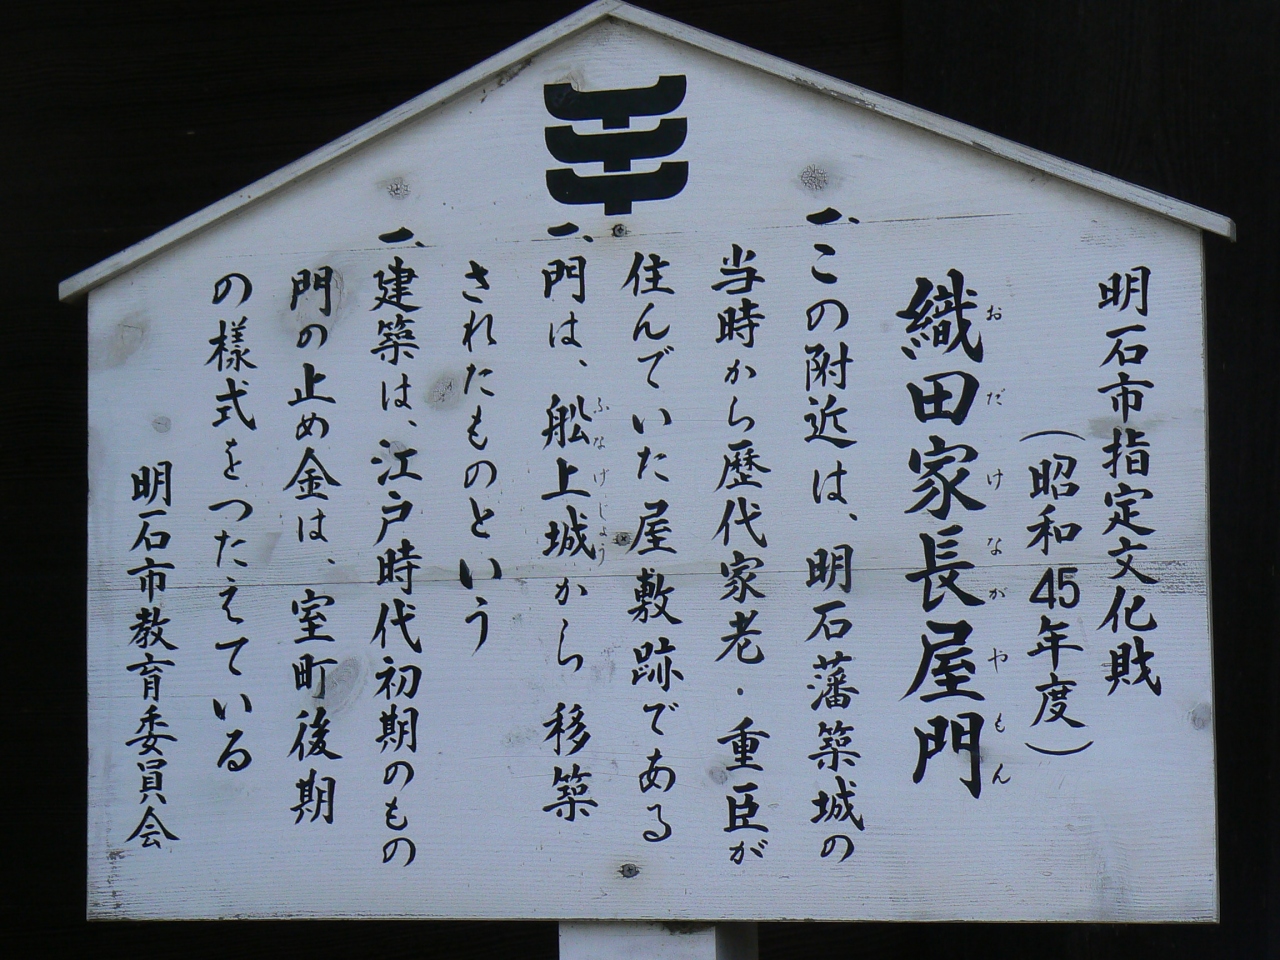 明石市指定文化財
（昭和45年度）
織田家長屋門
おだけながやもん
一、この附近は、明石藩築城の
当時から歴代家老・重臣が
住んでいた屋敷跡である
一、門は、船上城から移築
ふなげじょう
されたものという
一、建築は、江戸時代初期のもの
門の止め金は、室町後期
の様式をつたえている
明石市教育委員会